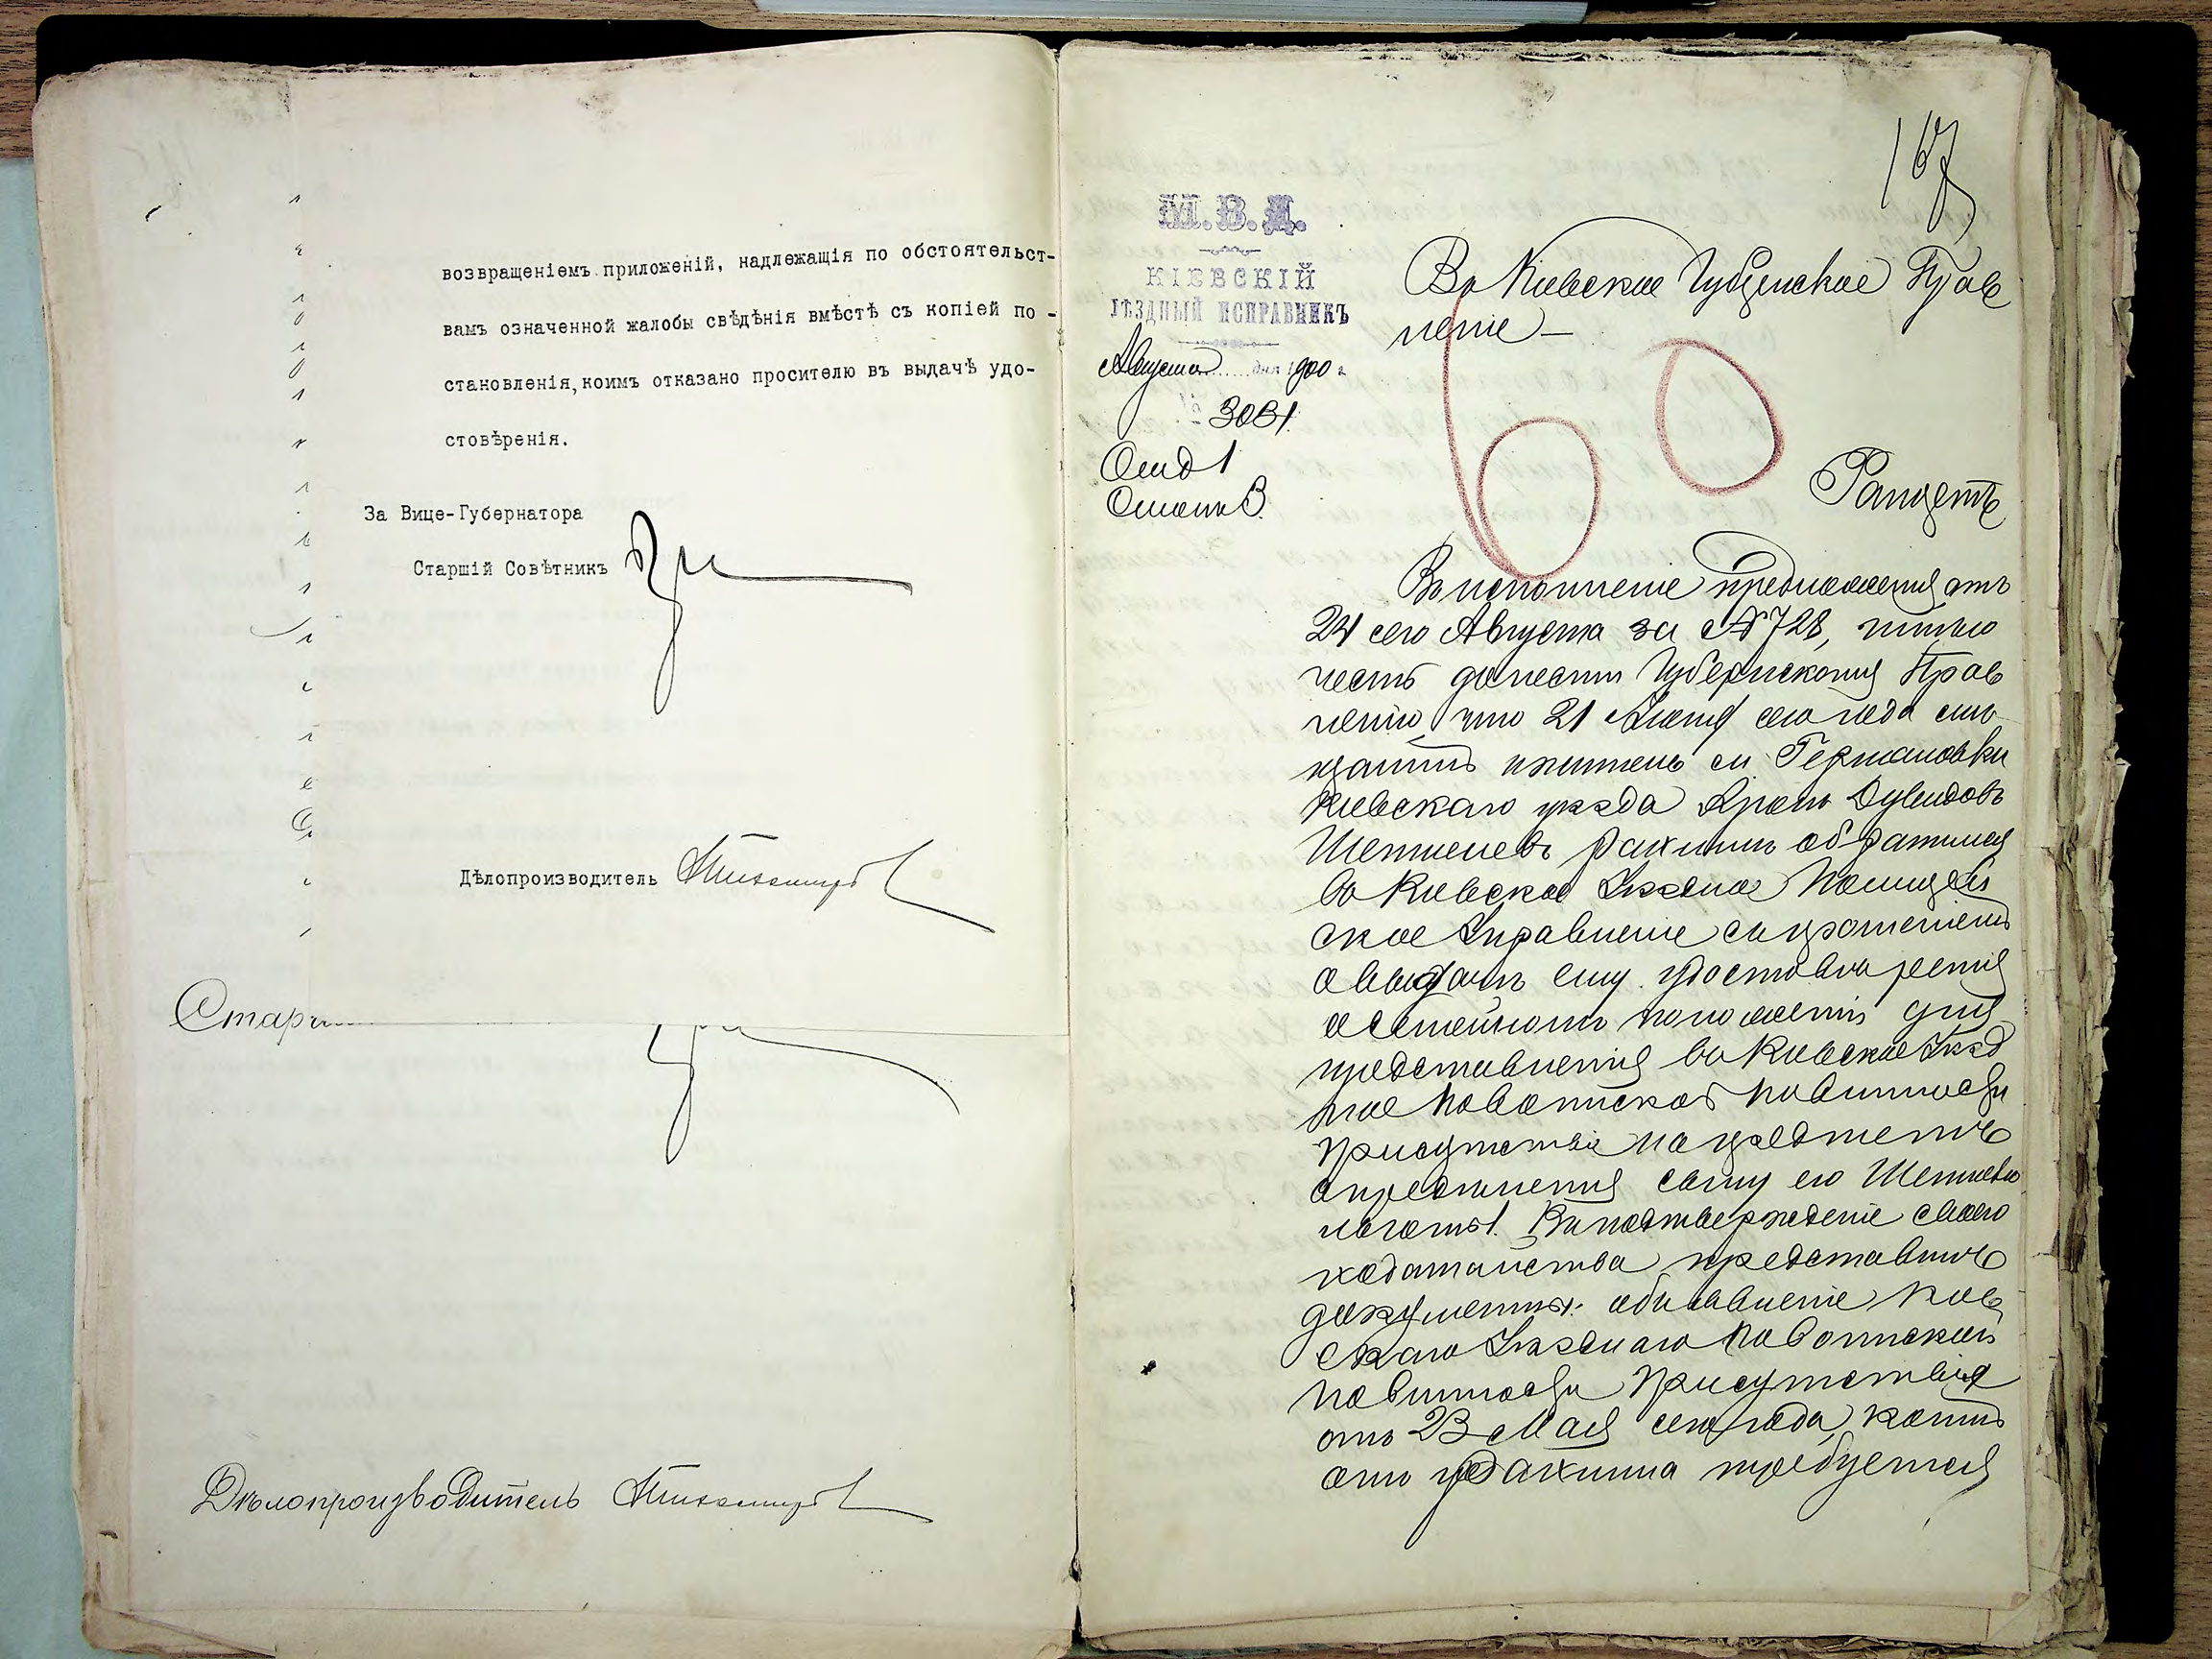 возвращеніемъ приложеній, надлежащія по обстоятельст-
вамъ означенной жалобы свѣдѣнія вмѣстѣ съ копіей по-
становленія, коимъ отказано просителю въ выдачѣ удо-
стовѣренія.
За Вице-Губернатора
Старшій Совѣтникъ
Дѣлопроизводитель
Стар
Дѣлопроизводитель
167
М.В.Д.
КІЕВСКІЙ
УѢЗДНЫЙ ИСПРАВНИКЪ
Августа дня 1900 г.
3031
Отд 1
Столъ 3.
60
Въ Кіевское Губернское Прав
леніе
Рапортъ
Во исполненіе предложенія отъ
24 сего Августа за № 728, имѣю
честь донести Губернскому Прав
ленію, что 21 Іюня сего года
житель м. Германовки
Кіевскаго уѣзда Аронъ Дувидовъ
обратился
въ Кіевское Уѣздное Полицей
ское Управленіе съ прошеніемъ
о выдачѣ ему удостовѣренія
о семейномъ положеніи для
представленія въ Кіевское Уѣзд
ное по воинской повинности
Присутствіе на предметъ
опредѣленія сыну его
льготы. Въ подтвержденіе своего
ходатайства представилъ
документы: объявленіе Кіев
скаго Уѣзднаго по воинской
повинности Присутствія
отъ 23 Мая сего года, коимъ
отъ требуется